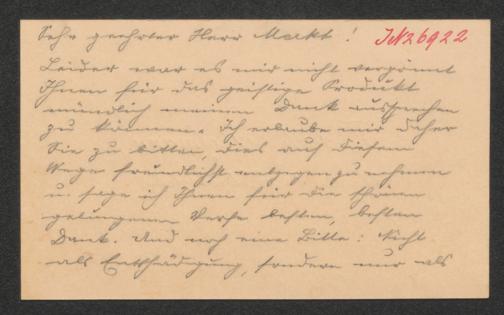 Sehr geehrter Herr Markt! IN 26922
Leider war es mir nicht vergönnt
Ihnen für das geistige Produkt
mündlich meinen Dank aussprechen
zu können. Ich erlaube mir daher
Sie zu bitten, dies auf diesem
Wege freundlichst entgegenzunehmen
u. sage ich Ihnen für die schönen
gelungenen Verse besten, besten
Dank. Und noch eine Bitte: Nicht
als Entschädigung, sondern nur als